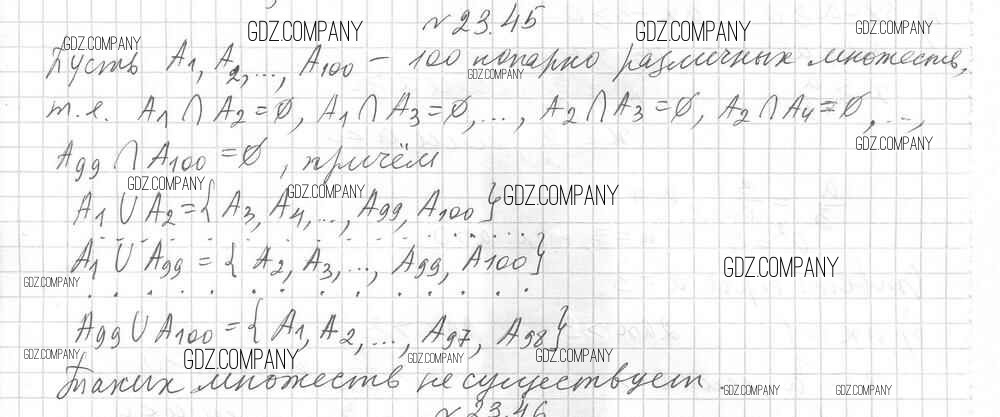 № 23.45
GDZ.COMPANY GDZ.COMPANY GDZ.COMPANY GDZ.COMPANY
Пусть A1, A2, ..., A100 – 100 попарно различных множеств,
GDZ.COMPANY
т.е. A1 ∩ A2 = ∅, A1 ∩ A3 = ∅, ..., A2 ∩ A3 = ∅, A2 ∩ A4 = ∅, ...,
GDZ.COMPANY
A99 ∩ A100 = ∅, причём
GDZ.COMPANY GDZ.COMPANY GDZ.COMPANY
A1 ∪ A2 = { A3, A4, ..., A99, A100 }
A1 ∪ A99 = { A2, A3, ..., A99, A100 }
GDZ.COMPANY GDZ.COMPANY
A99 ∪ A100 = { A1, A2, ..., A97, A98 }
GDZ.COMPANY GDZ.COMPANY GDZ.COMPANY GDZ.COMPANY
Таких множеств не существует.
GDZ.COMPANY GDZ.COMPANY
№ 23.46